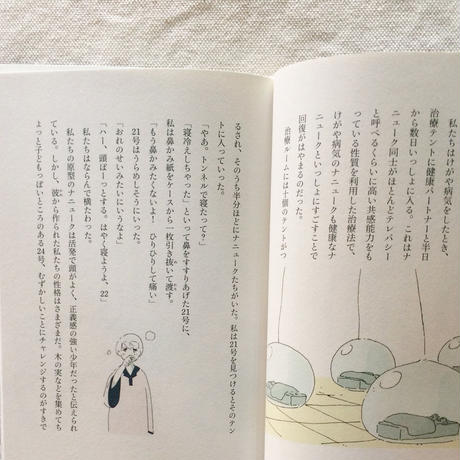 私たちはけがや病気をしたとき、
治療テントに健康パートナーと半日
から数日いっしょに入る。これはナ
ニューク同士がほとんどテレパシー
と呼べるくらいに高い共感能力をも
っている性質を利用した治療法で、
けがや病気のナニュークも健康なナ
ニュークといっしょにすごすことで
回復がはやまるのだった。
治療ルームには十個のテントがつ
るされ、そのうち半分ほどにナニュークたちがいた。私は21号を見つけるとそのテン
トに入っていった。
「やあ。トンネルで寝たって？」
「寝冷えしちゃった」といって鼻をすすりあげた21号に、
私は鼻かみ紙をケースから一枚引き抜いて渡す。
「もう鼻かみたくないよ！　ひりひりして痛い」
21号はうらめしそうにいった。
「おれのせいみたいにいうなよ」
「ハー、頭ぼーっとする。はやく寝ようよ、22」
私たちはならんで横たわった。
私たちの原型のナニュークは活発で頭がよく、正義感の強い少年だったと伝えられ
ている。しかし、彼から作られた私たちの性格はさまざまだ。木の実などを集めてち
ょっと子どもっぽいところのある24号、むずかしいことにチャレンジするのがすきで